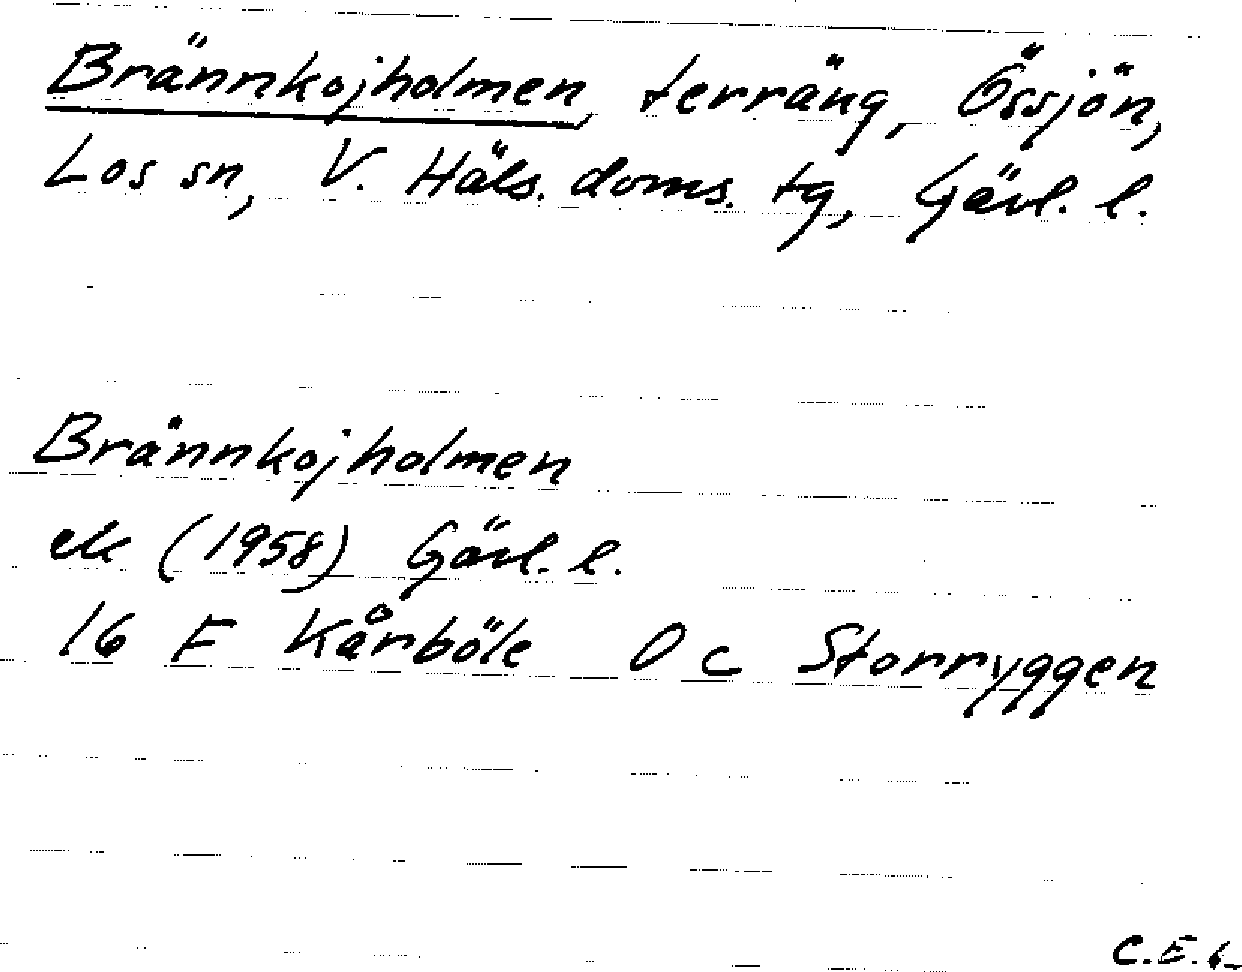 Brännkojholmen, terräng, Össjön,
Los sn, V. Häls. doms. tg, Gävl. l.
Brännkojholmen
ek (1958) Gävl. l.
16 F Kårböle 0 c Storryggen
C.E.